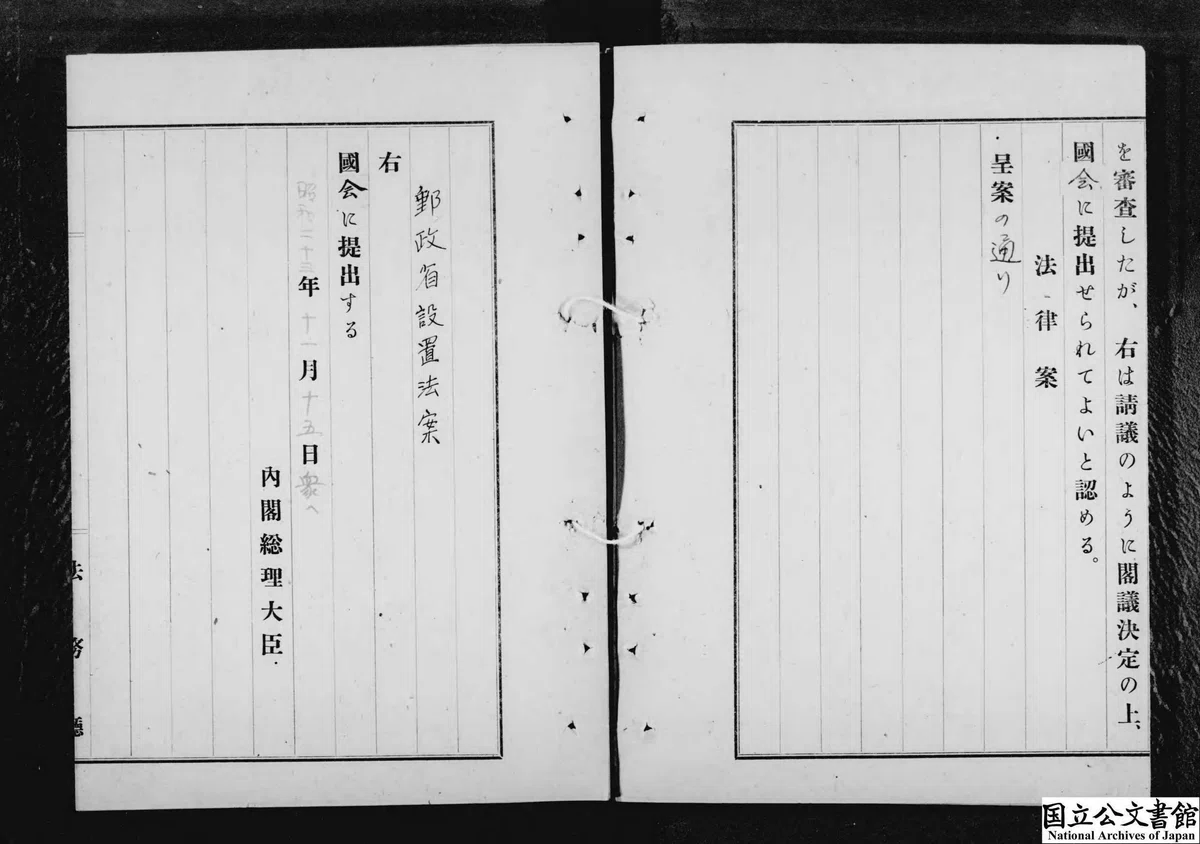 を審査したが、右は請議のように閣議決定の上、
國会に提出せられてよいと認める。
法律案
呈案の通り
郵政省設置法案
右
國会に提出する
昭和二十三年十一月十五日衆へ
内閣総理大臣
法務廳
国立公文書館
National Archives of Japan